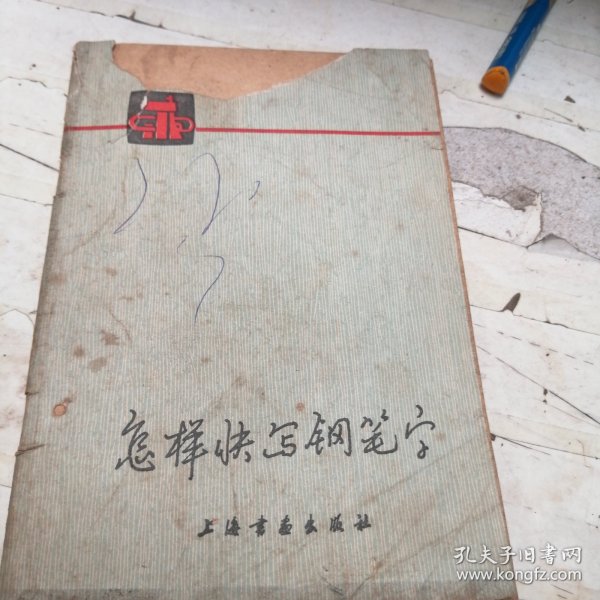 怎样快写钢笔字
上海书画出版社
孔夫子旧书网
www.kongfz.com